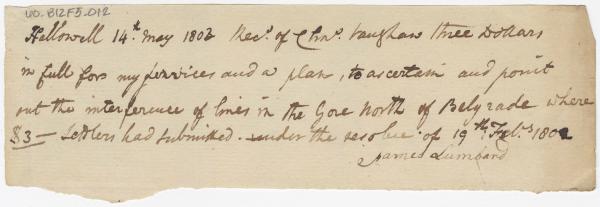 UO-B12F5-012
Hallowell 14th May 1802 Recd. of Chas. Vaughan three Dollars
in full for my services and a plan, to ascertain and point
out the interference of lines in the Gore North of Belgrade where
$3 — Settlers had submitted. under the resolve of 19th Feby. 1802
James Lumbard